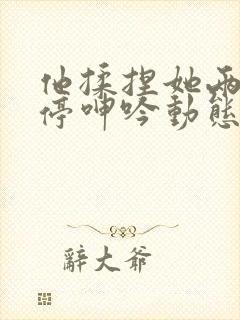 他揉捏她两
停呻吟動態
辭大爷